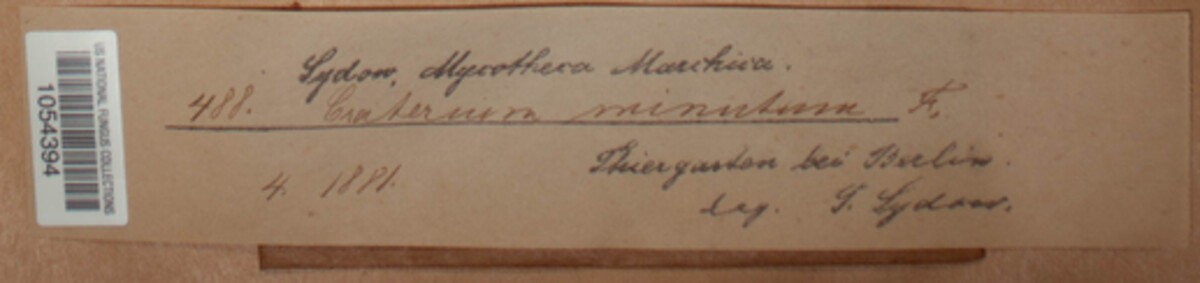 US NATIONAL FUNGUS COLLECTIONS
1054394
Sydow, Mycotheca Marchica.
488. Craterium minutum Fr.
4. 1881.
Thiergarten bei Berlin.
leg. P. Sydow.